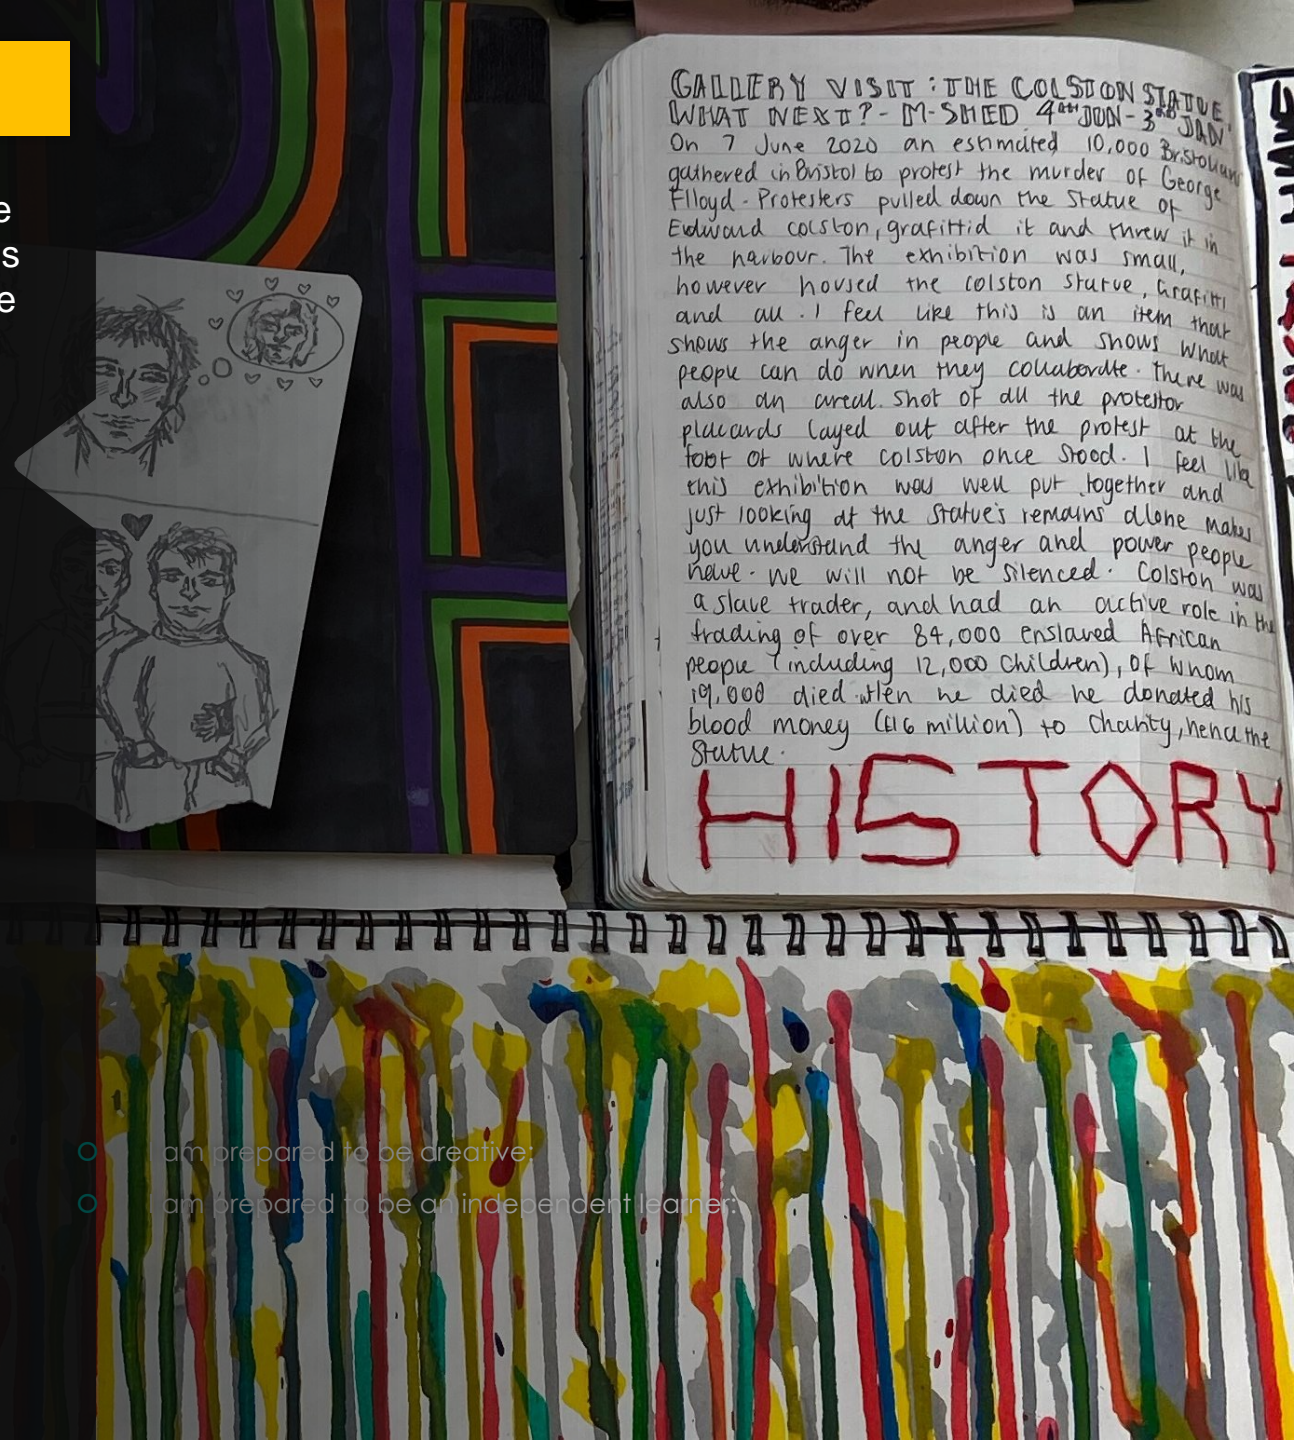 e
s
e
GALLERY VISIT : THE COLSTON STATUE.
WHAT NEXT? - M-SHED 4TH JUN - 3RD JAN
On 7 June 2020 an estimated 10,000 Bristolians
gathered in Bristol to protest the murder of George
Flloyd. Protesters pulled down the statue of
Edward colston, grafittid it and threw it in
the harbour. The exhibition was small,
however housed the colston statue, Grafitti
and all. I feel like this is an item that
shows the anger in people and shows what
people can do when they collaborate. There was
also an areal shot of all the protestor
placards layed out after the protest at the
foot of where colston once stood. I feel like
this exhibition was well put together and
just looking at the statue's remains alone makes
you understand the anger and power people
have. we will not be silenced. Colston was
a slave trader, and had an active role in the
trading of over 84,000 enslaved African
people (including 12,000 children), of whom
19,000 died. When he died he donated his
blood money (£16 million) to charity, hence the
Statue.
HISTORY
I am prepared to be creative:
I am prepared to be an independent learner: